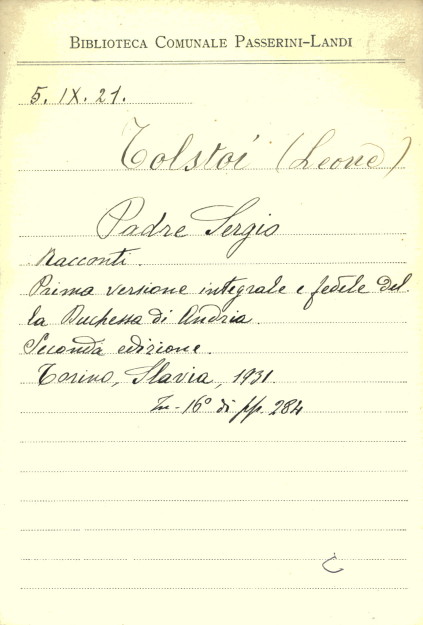 BIBLIOTECA COMUNALE PASSERINI-LANDI
5. IX. 21.
Tolstoi (Leone)
Padre Sergio
Racconti.
Prima versione integrale e fedele del-
la Duchessa di Andria.
Seconda edizione.
Torino, Slavia, 1931.
In-16° di pp. 284
C